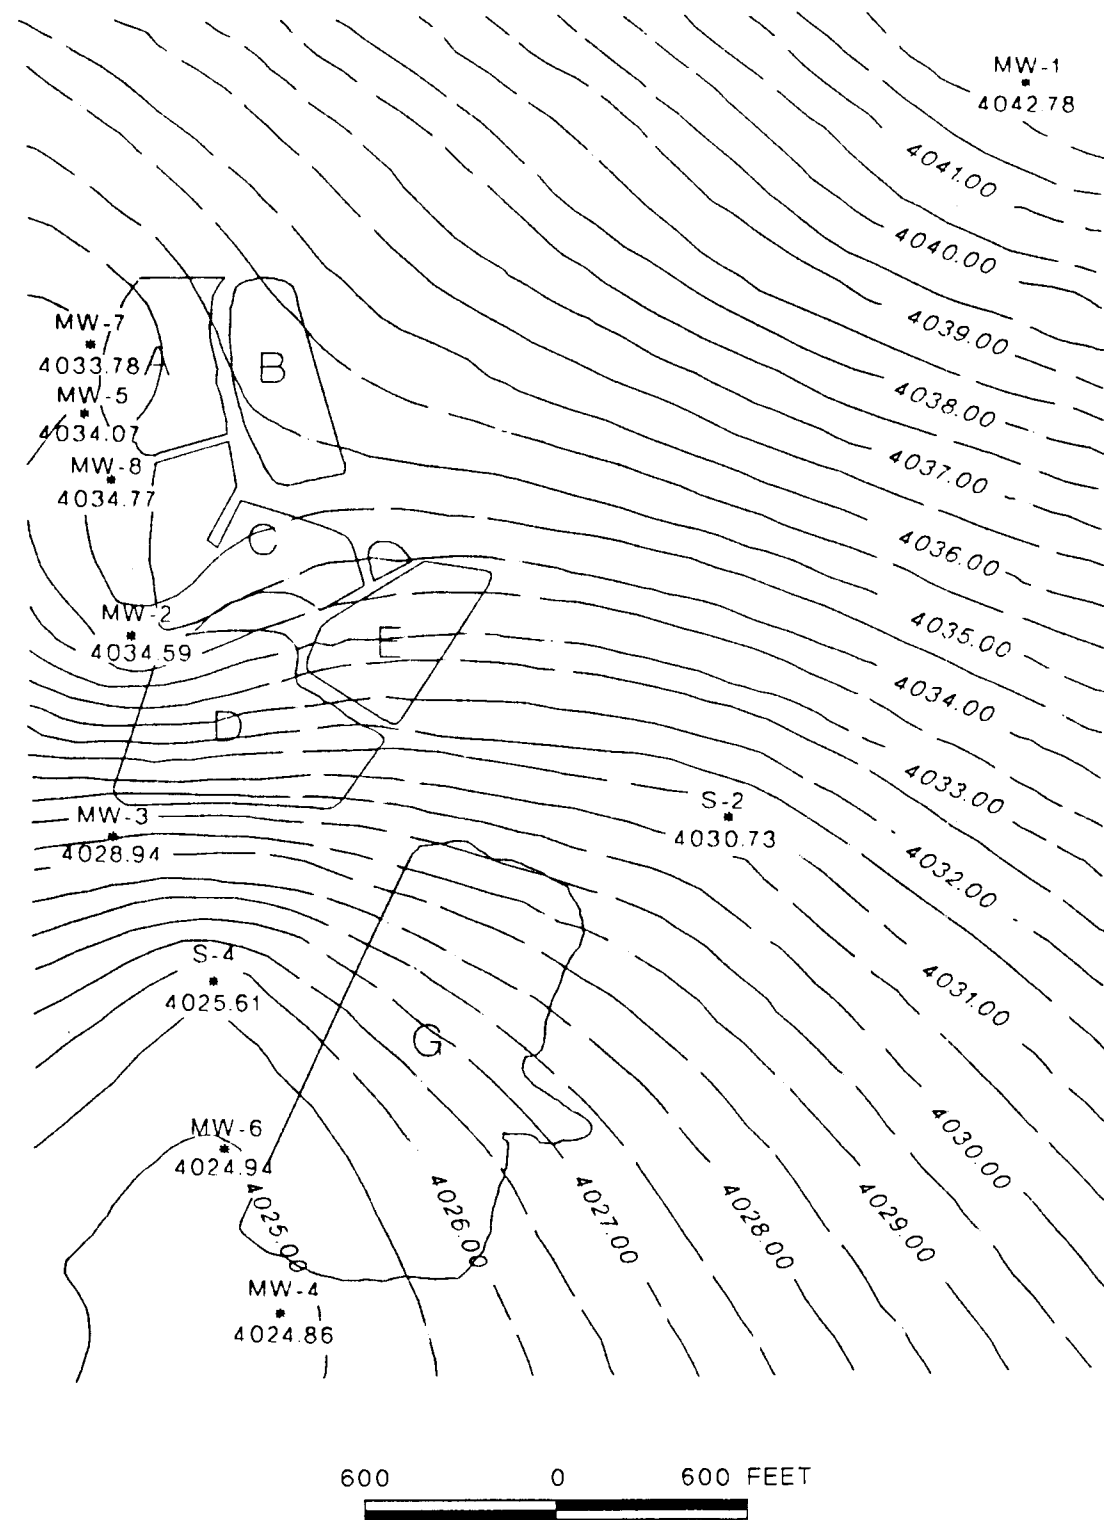 MW-1
4042.78
4041.00
4040.00
4039.00
4038.00
4037.00
4036.00
4035.00
4034.00
4033.00
4032.00
4031.00
4030.00
4029.00
4028.00
4027.00
4026.00
4025.00
MW-7
4033.78
A
B
MW-5
4034.07
MW-8
4034.77
C
MW-2
4034.59
E
D
S-2
4030.73
MW-3
4028.94
S-4
4025.61
G
MW-6
4024.94
MW-4
4024.86
600 0 600 FEET